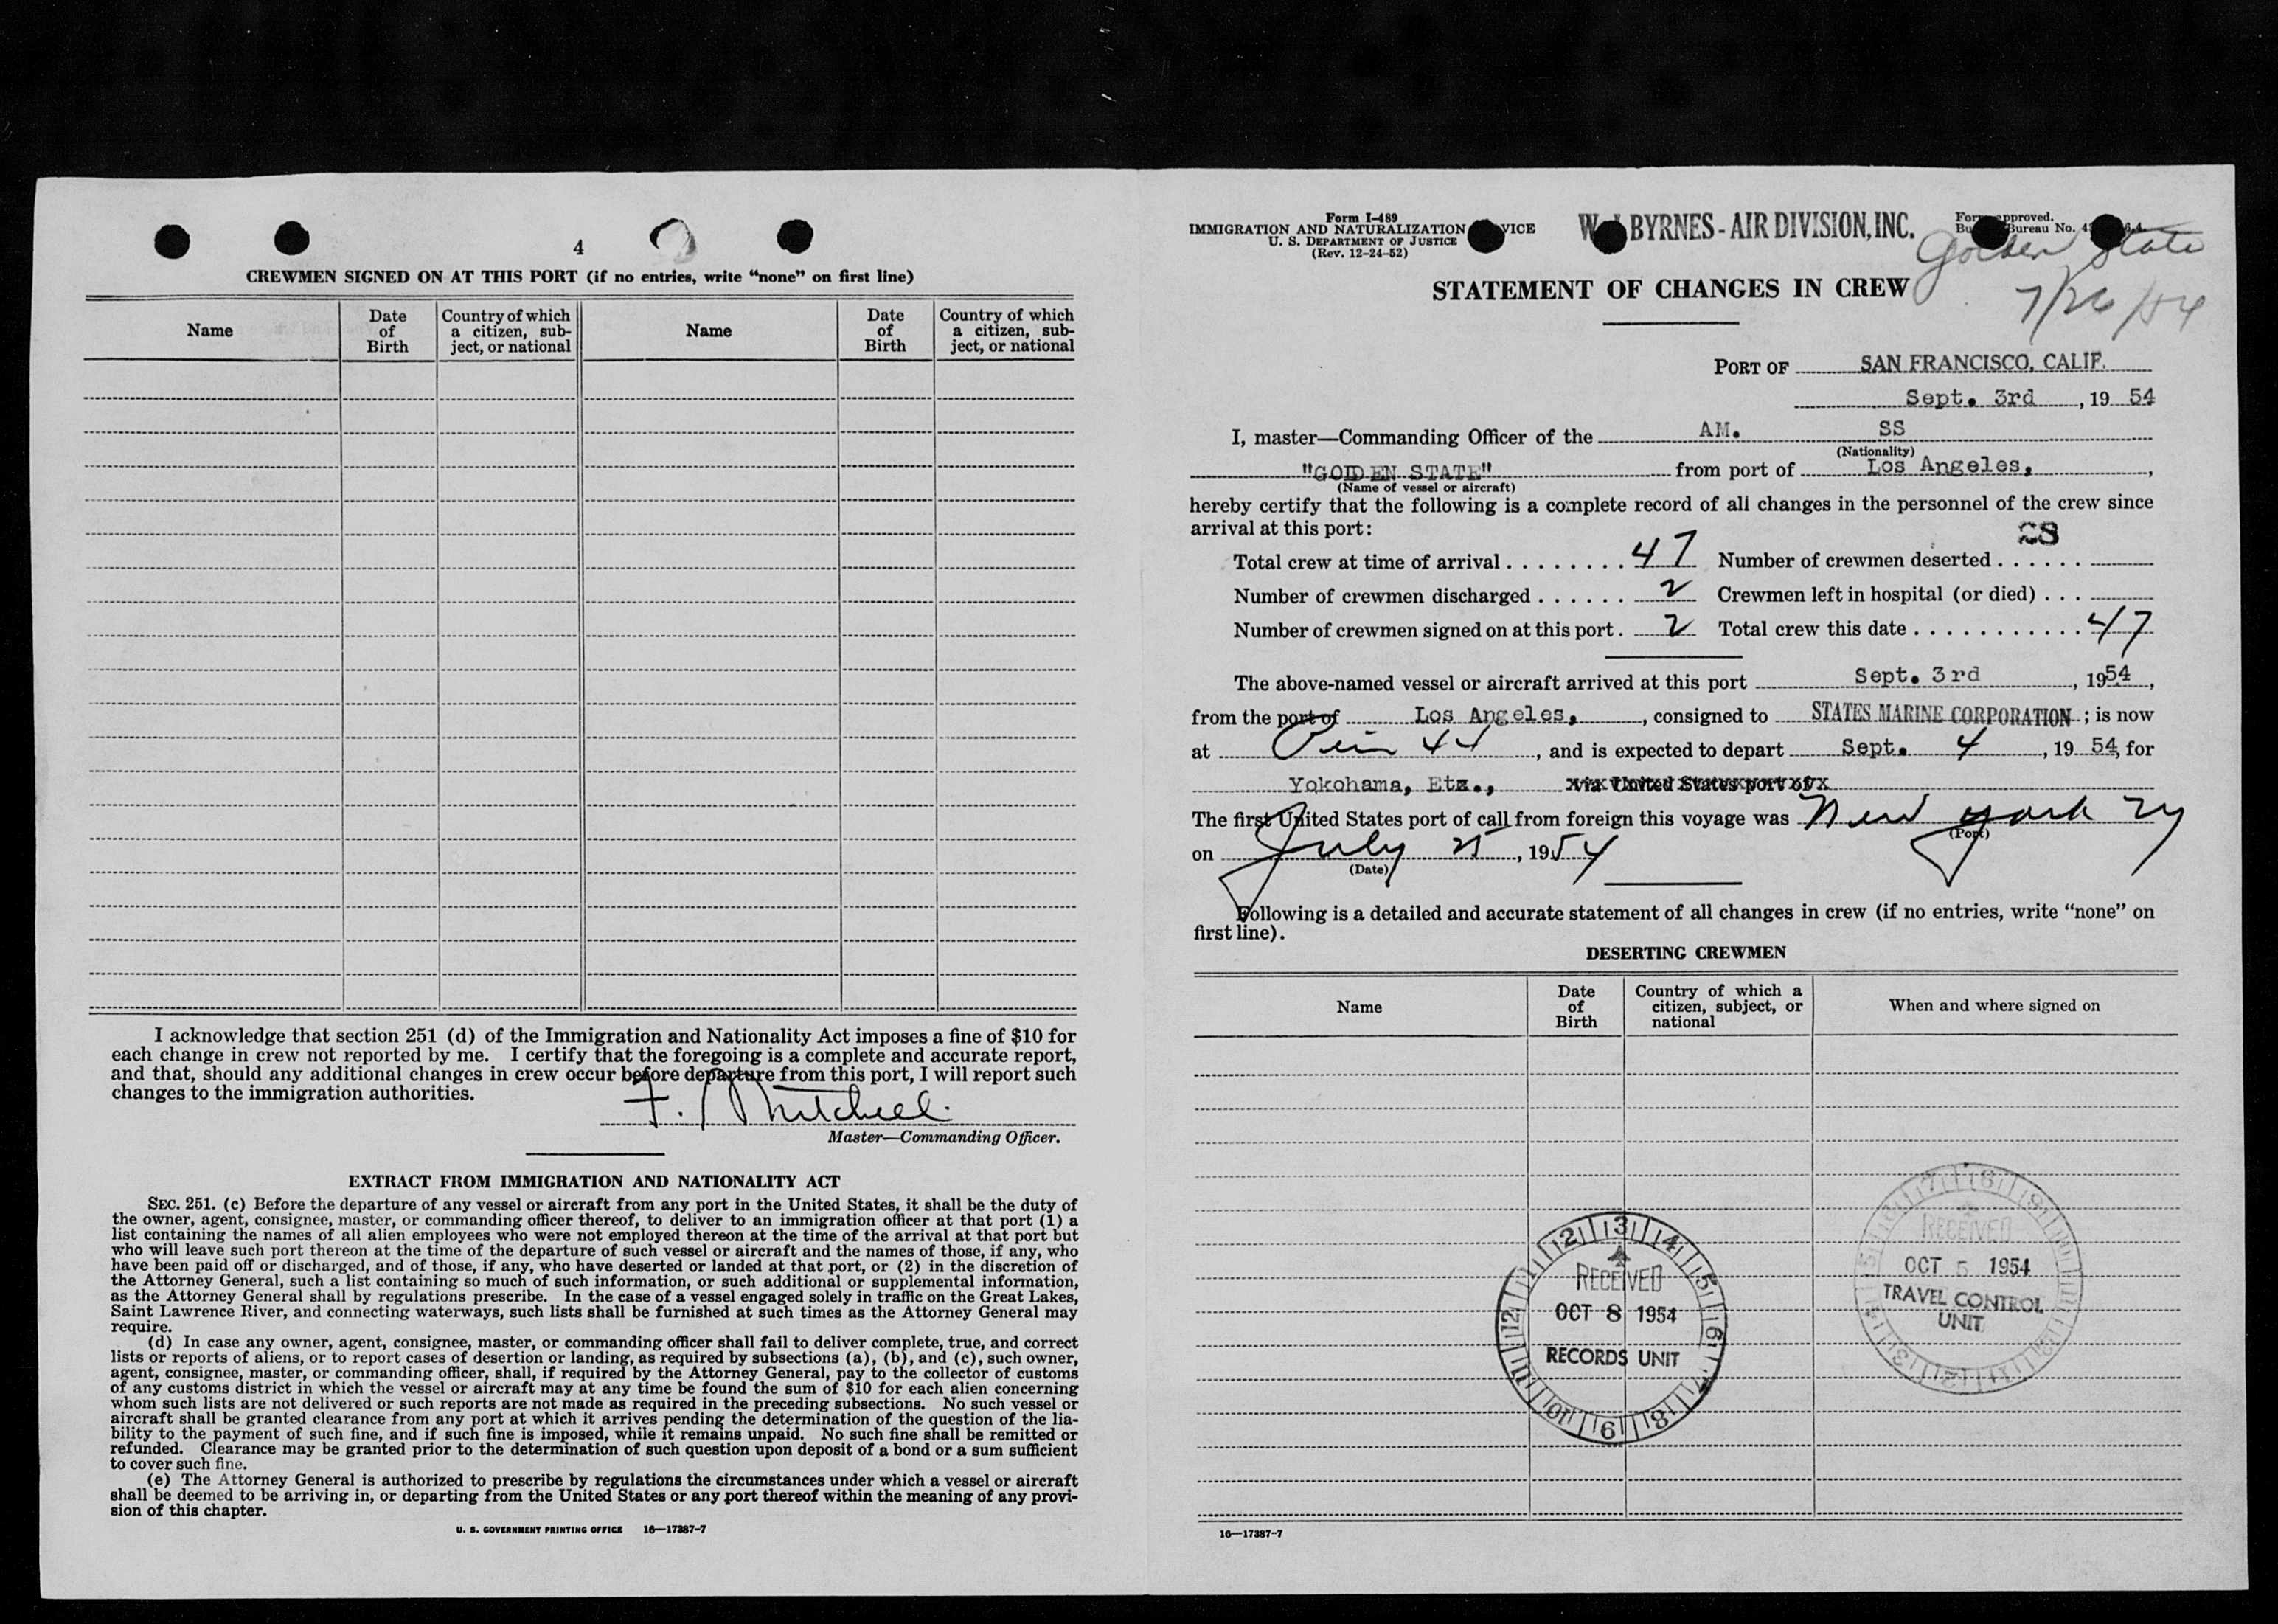 4
CREWMEN SIGNED ON AT THIS PORT (if no entries, write “none” on first line)
Name
Date of Birth
Country of which a citizen, sub-ject, or national
Name
Date of Birth
Country of which a citizen, sub-ject, or national
I acknowledge that section 251 (d) of the Immigration and Nationality Act imposes a fine of $10 for
each change in crew not reported by me. I certify that the foregoing is a complete and accurate report,
and that, should any additional changes in crew occur before departure from this port, I will report such
changes to the immigration authorities.
F. Mitchell
Master—Commanding Officer.
EXTRACT FROM IMMIGRATION AND NATIONALITY ACT
SEC. 251. (c) Before the departure of any vessel or aircraft from any port in the United States, it shall be the duty of
the owner, agent, consignee, master, or commanding officer thereof, to deliver to an immigration officer at that port (1) a
list containing the names of all alien employees who were not employed thereon at the time of the arrival at that port but
who will leave such port thereon at the time of the departure of such vessel or aircraft and the names of those, if any, who
have been paid off or discharged, and of those, if any, who have deserted or landed at that port, or (2) in the discretion of
the Attorney General, such a list containing so much of such information, or such additional or supplemental information,
as the Attorney General shall by regulations prescribe. In the case of a vessel engaged solely in traffic on the Great Lakes,
Saint Lawrence River, and connecting waterways, such lists shall be furnished at such times as the Attorney General may
require.
(d) In case any owner, agent, consignee, master, or commanding officer shall fail to deliver complete, true, and correct
lists or reports of aliens, or to report cases of desertion or landing, as required by subsections (a), (b), and (c), such owner,
agent, consignee, master, or commanding officer, shall, if required by the Attorney General, pay to the collector of customs
of any customs district in which the vessel or aircraft may at any time be found the sum of $10 for each alien concerning
whom such lists are not delivered or such reports are not made as required in the preceding subsections. No such vessel or
aircraft shall be granted clearance from any port at which it arrives pending the determination of the question of the lia-
bility to the payment of such fine, and if such fine is imposed, while it remains unpaid. No such fine shall be remitted or
refunded. Clearance may be granted prior to the determination of such question upon deposit of a bond or a sum sufficient
to cover such fine.
(e) The Attorney General is authorized to prescribe by regulations the circumstances under which a vessel or aircraft
shall be deemed to be arriving in, or departing from the United States or any port thereof within the meaning of any provi-
sion of this chapter.
U. S. GOVERNMENT PRINTING OFFICE 16—17387-7
Form I-489
IMMIGRATION AND NATURALIZATION
U. S. DEPARTMENT OF JUSTICE
(Rev. 12-24-52)
BYRNES - AIR DIVISION, INC.
Bureau No.
Golden State
7/26/54
STATEMENT OF CHANGES IN CREW
PORT OF SAN FRANCISCO, CALIF.
Sept. 3rd, 19 54
I, master—Commanding Officer of the AM. SS
(Nationality)
"GOLDEN STATE" from port of Los Angeles,
(Name of vessel or aircraft)
hereby certify that the following is a complete record of all changes in the personnel of the crew since
arrival at this port:
28
Total crew at time of arrival 47 Number of crewmen deserted
Number of crewmen discharged 2 Crewmen left in hospital (or died)
Number of crewmen signed on at this port. 2 Total crew this date 47
The above-named vessel or aircraft arrived at this port Sept. 3rd, 1954,
from the port of Los Angeles, , consigned to STATES MARINE CORPORATION ; is now
at Pier 44, and is expected to depart Sept. 4, 19 54, for
Yokohama, Etc., via United States port of
The first United States port of call from foreign this voyage was New York NY
(Port)
on July 25, 1954
(Date)
Following is a detailed and accurate statement of all changes in crew (if no entries, write “none” on
first line).
DESERTING CREWMEN
Name
Date of Birth
Country of which a citizen, subject, or national
When and where signed on
RECEIVED
OCT 8 1954
RECORDS UNIT
RECEIVED
OCT 5 1954
TRAVEL CONTROL
UNIT
16—17387-7